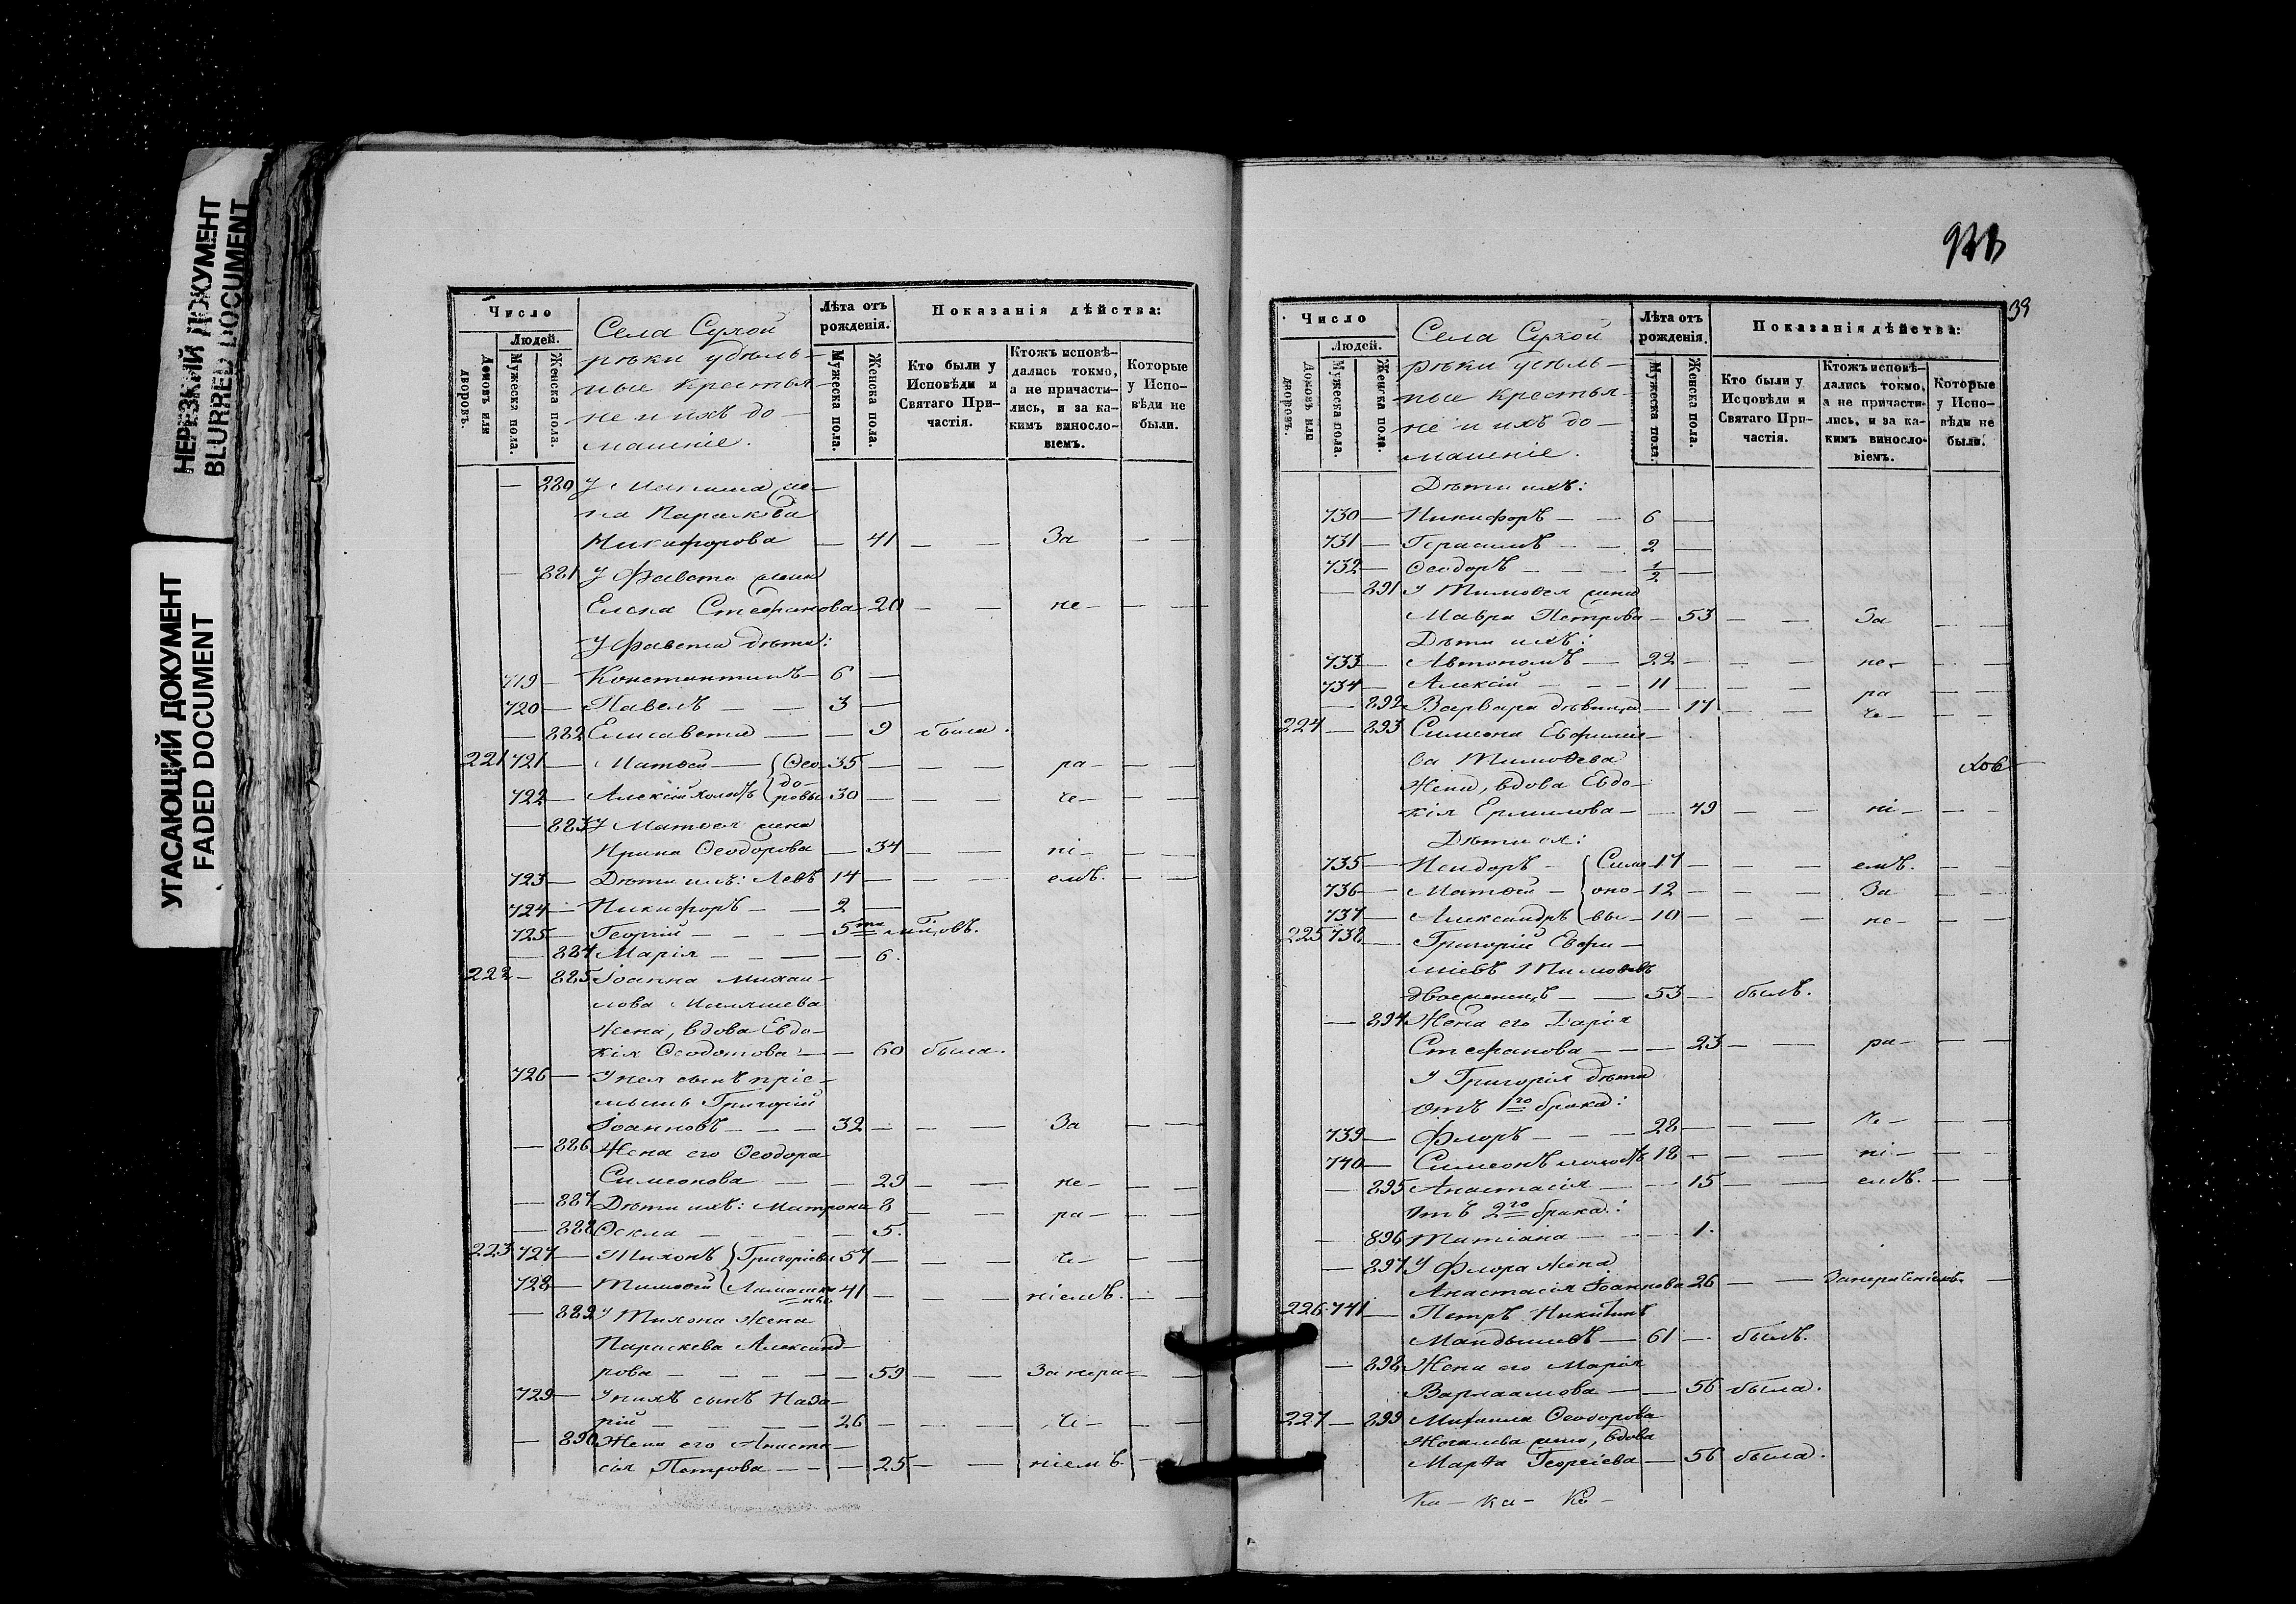 НЕРЕЗКИЙ ДОКУМЕНТ
BLURRED DOCUMENT
УГАСАЮЩИЙ ДОКУМЕНТ
FADED DOCUMENT
Число
Людей.
Домовъ или дворовъ.
Мужеска пола.
Женска пола.
Села Сухой
рѣки удѣль-
ные крестья-
не и ихъ до-
машніе.
Лѣта отъ рожденія.
Мужеска пола.
Женска пола.
Показанія дѣйства:
Кто были у Исповѣди и Святаго Причастія.
Ктожъ исповѣдались токмо, а не причастились, и за какимъ винословіемъ.
Которые у Исповѣди не были.
— 880 У же-
на Параскева
Никифорова — 41 — — За — —
— 881 У Фавста жена
Елена Стефанова 20 — — не — — —
У Фавста дѣти:
719 — Константинъ — 6 —
720 — Павелъ — — 3 —
— 882 Елисавета — — 9 была.
221 721 — Матѳей — {Ѳео- 35 — — — ра — — —
722 — Алексій холостъ {до-ровы 30 — — — че — — —
— 883 У Матѳея жена
Ирина Ѳеодорова — 34 — — ні — — —
723 — Дѣти ихъ: Левъ 14 — — — емъ. — —
724 — Никифоръ — — 2 —
725 — Георгій — — — 5ти мѣсяцовъ.
— 884 Марія — — — — 6.
222 — 885 Іоанна Михаи-
лова
Жена, вдова Евдо-
кія Ѳеодотова — — 60 была.
726 — У нея сынъ пріе-
мышъ Григорій
Іоанновъ — — — 32 — — — За — —
— 886 Жена его Ѳеодора
Симеонова — — 29 — — не — — —
— 887 Дѣти ихъ: Матрона 8 — — ра — — —
— 888 Ѳекла — — — — 5.
223 727 — Тихонъ } Григоріевы 57 — — — че — — —
728 — Тимоѳей { 41 — — — ніемъ. — —
— 889 У Тихона жена
Параскева Александ-
рова — — — — 59 — — За нера — —
729 — У нихъ сынъ Наза-
рій — — — — 26 — — — че — — —
— 890 Жена его Анаста-
сія Петрова — — — 25 — — ніемъ. —
39
Число
Людей.
Домовъ или дворовъ.
Мужеска пола.
Женска пола.
Села Сухой
рѣки удѣль-
ные крестья-
не и ихъ до-
машніе.
Лѣта отъ рожденія.
Мужеска пола.
Женска пола.
Показанія дѣйства:
Кто были у Исповѣди и Святаго Причастія.
Ктожъ исповѣдались токмо, а не причастились, и за какимъ винословіемъ.
Которые у Исповѣди не были.
Дѣти ихъ:
730 — Никифоръ — — 6 —
731 — Герасимъ — — 2 —
732 — Ѳеодоръ — — — 1/2 —
— 891 У Тимоѳея жена
Мавра Петрова — 53 — — За — —
Дѣти ихъ:
733 — Автономъ — 22 — — — не — — —
734 — Алексій — — — 11 — — — ра — —
— 892 Варвара дѣвица — 17 — — че — — —
224 — 893 Симеона Евфиміе-
ва Тимоѳева
Жена, вдова Евдо-
кія Ермилова — — 49 — — ні — — —
Дѣти ея:
735 — Исидоръ — {Симе- 17 — — — емъ. — —
736 — Матѳей — {оно- 12 — — — За — —
737 — Александръ {вы — 10 — — — не — — —
225 738 — Григорій Евфи-
міевъ Тимоѳеевъ
двоеженецъ — — 53 — былъ.
— 894 Жена его Дарія
Стефанова — — — 23 — — ра — — —
У Григорія дѣти
Отъ 1го брака:
739 — Флоръ — — — 28 — — — че — — —
740 — Симеонъ холостъ 18 — — — ні — — —
— 895 Анастасія — — 15 — — емъ. — —
Отъ 2го брака:
— 896 Татіана — — — 1.
— 897 У Флора жена
Анастасія Іоаннова 26 — — За нераченіемъ. —
226 741 — Петръ Никитинъ
— 61 — былъ.
— 898 Жена его Марія
Варлаамова — — 56 была.
227 — 899 Михаила Ѳеодорова
жена, вдова
Марѳа Георгіева — 56 была.